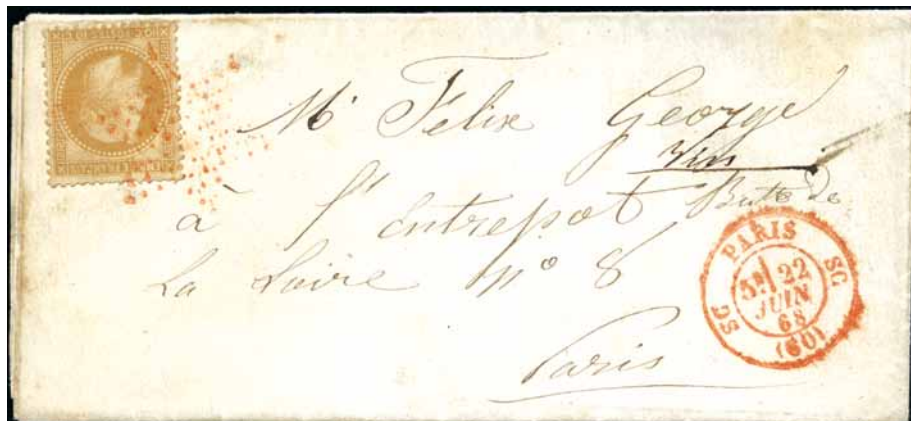 Mr Felix George
Vins
à l'entrepot Butte de
La Loire n° 8
Paris
PARIS
SC SC
3e 22
JUIN
68
(60)